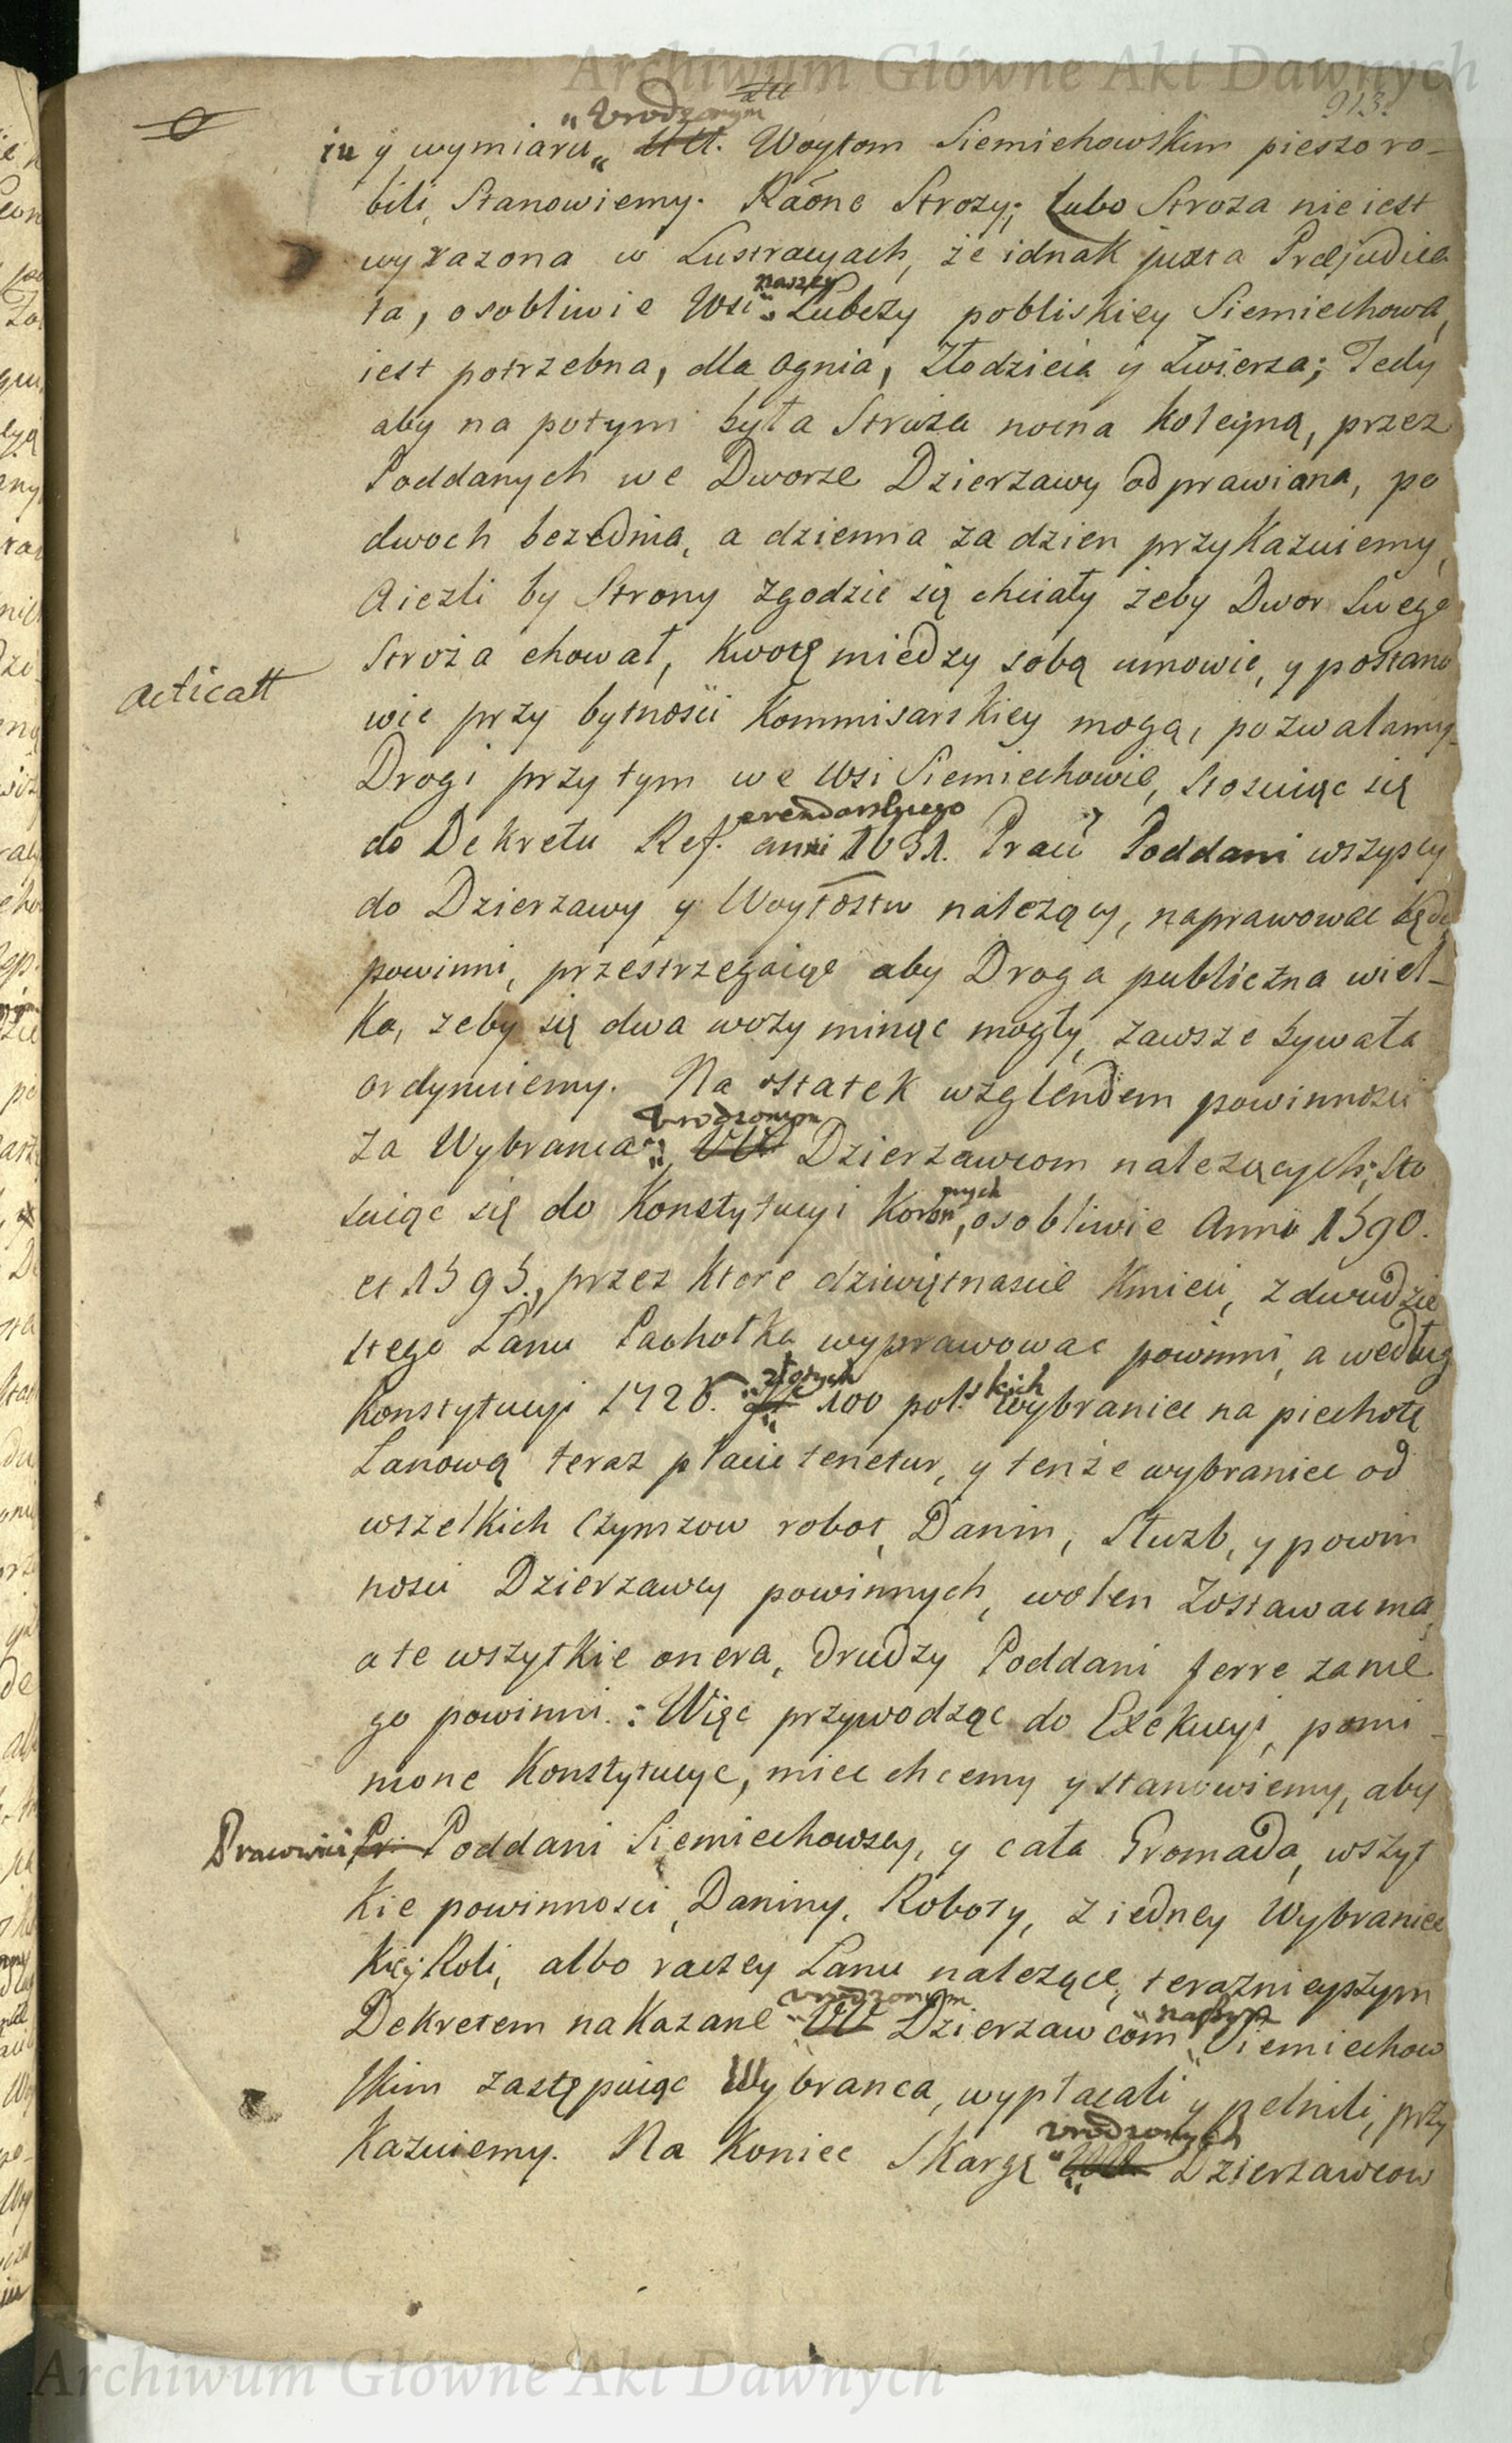 Archiwum Główne Akt Dawnych
913.
att
"Urodzonym
iu y wymiaru" Ur. Woytom Siemiechowskim pieszo ro-
bili, Stanowiemy. Raone Strozy; lubo Stroza nie iest
wyrazona w Lustracyach, że idnak juxta Præjudica
naszey
ta, osobliwie Wsi Lubczy pobliskiey Siemiechowa,
iest potrzebna, dla ognia, Złodzieia y Zwierza; Tedy
aby na potym była Stroża nocna kolejną, przez
Poddanych we Dworze Dzierzawy odprawiana, po
dwoch bezednia, a dzienna za dzien przykazuiemy,
Aiezli by Strony zgodzic się chciały żeby Dwor Swego
Stroża chował, kwotę miedzy sobą umowic, y postano
Acticatt
wic przy bytnosci Kommisarskiey mogą, pozwalamy
Drogi przy tym we Wsi Siemiechowie, stosuiąc się
erendarskiego
do Dekretu Ref. anni 1631. Prac: Poddani wszyscy
do Dzierzawy y Woytostw należący, naprawowac będą
powinni, przestrzegaiąc aby Droga publiczna wiel-
ka, żeby się dwa wozy minąc mogły, zawsze bywała
ordynuiemy. Na ostatek względem powinnosci
Urodzonym
za Wybranca UU Dzierzawcom należących; sto
nnych
suiąc się do Konstytucyi Koron, osobliwie Anni 1590.
et 1595., przez ktore dziwiętnascie Kmieci, z dwudzie
stego Łanu Pachołka wyprawowac powinni, a według
złotych skich
Konstytucyi 1726. zł 100 pol. wybraniec na piechotę
Łanową teraz płacic tenetur, y tenże wybraniec od
wszelkich Czymzow robot, Danin, Służb, y powin
nosci Dzierzawcy powinnych, wolen zostawac ma,
a te wszytkie onera, drudzy Poddani ferre za nie
go powinni.: Więc przywodząc do Exekucyi, pomi-
nione Konstytucye, miec chcemy y stanowiemy, aby
Pracowici Pr: Poddani Siemiechowscy, y cała Gromada, wszyt
kie powinnosci, Daniny, Roboty, z iedney Wybraniec
kiey Roli, albo raczey Łanu należące, teraznieyszym
urodzonym naszym
Dekretem nakazane UU Dzierzawcom Siemiechow
skim zastępuiąc Wybranca, wypłacali y pełnili, przy
urodzonych
kazuiemy. Na Koniec Skargę UU Dzierzawcow
Archiwum Główne Akt Dawnych